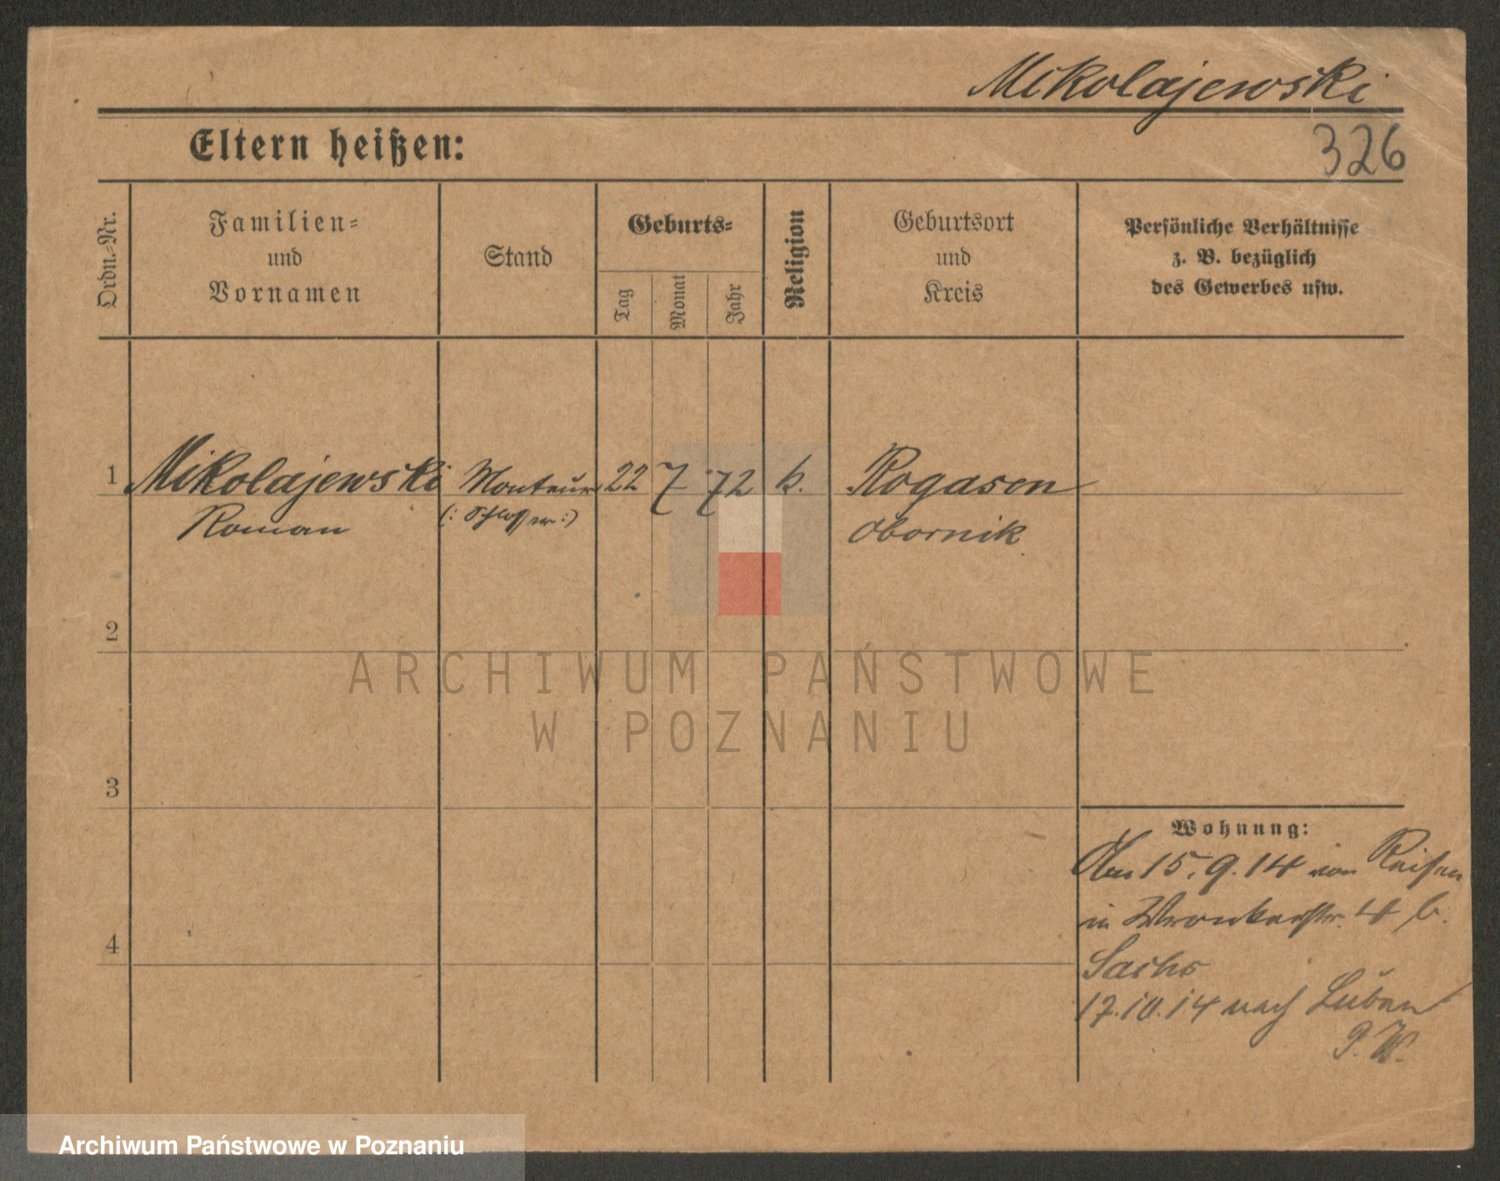 Mikolajewski
Eltern heißen:
326
Ordn.-Nr.
Familien-
und
Vornamen
Stand
Geburts-
Tag
Monat
Jahr
Religion
Geburtsort
und
Kreis
Persönliche Verhältnisse
z. B. bezüglich
des Gewerbes usw.
1
Mikolajewski
Roman
Monteur
(: Schlosser :)
22
7
72
k.
Rogasen
Obornik
2
3
4
Wohnung:
Am 15.9.14 von Reisen
in Wronkerstr. 4 b.
Sachs
17.10.14 nach Luban
P. W.
ARCHIWUM PAŃSTWOWE
W POZNANIU
Archiwum Państwowe w Poznaniu